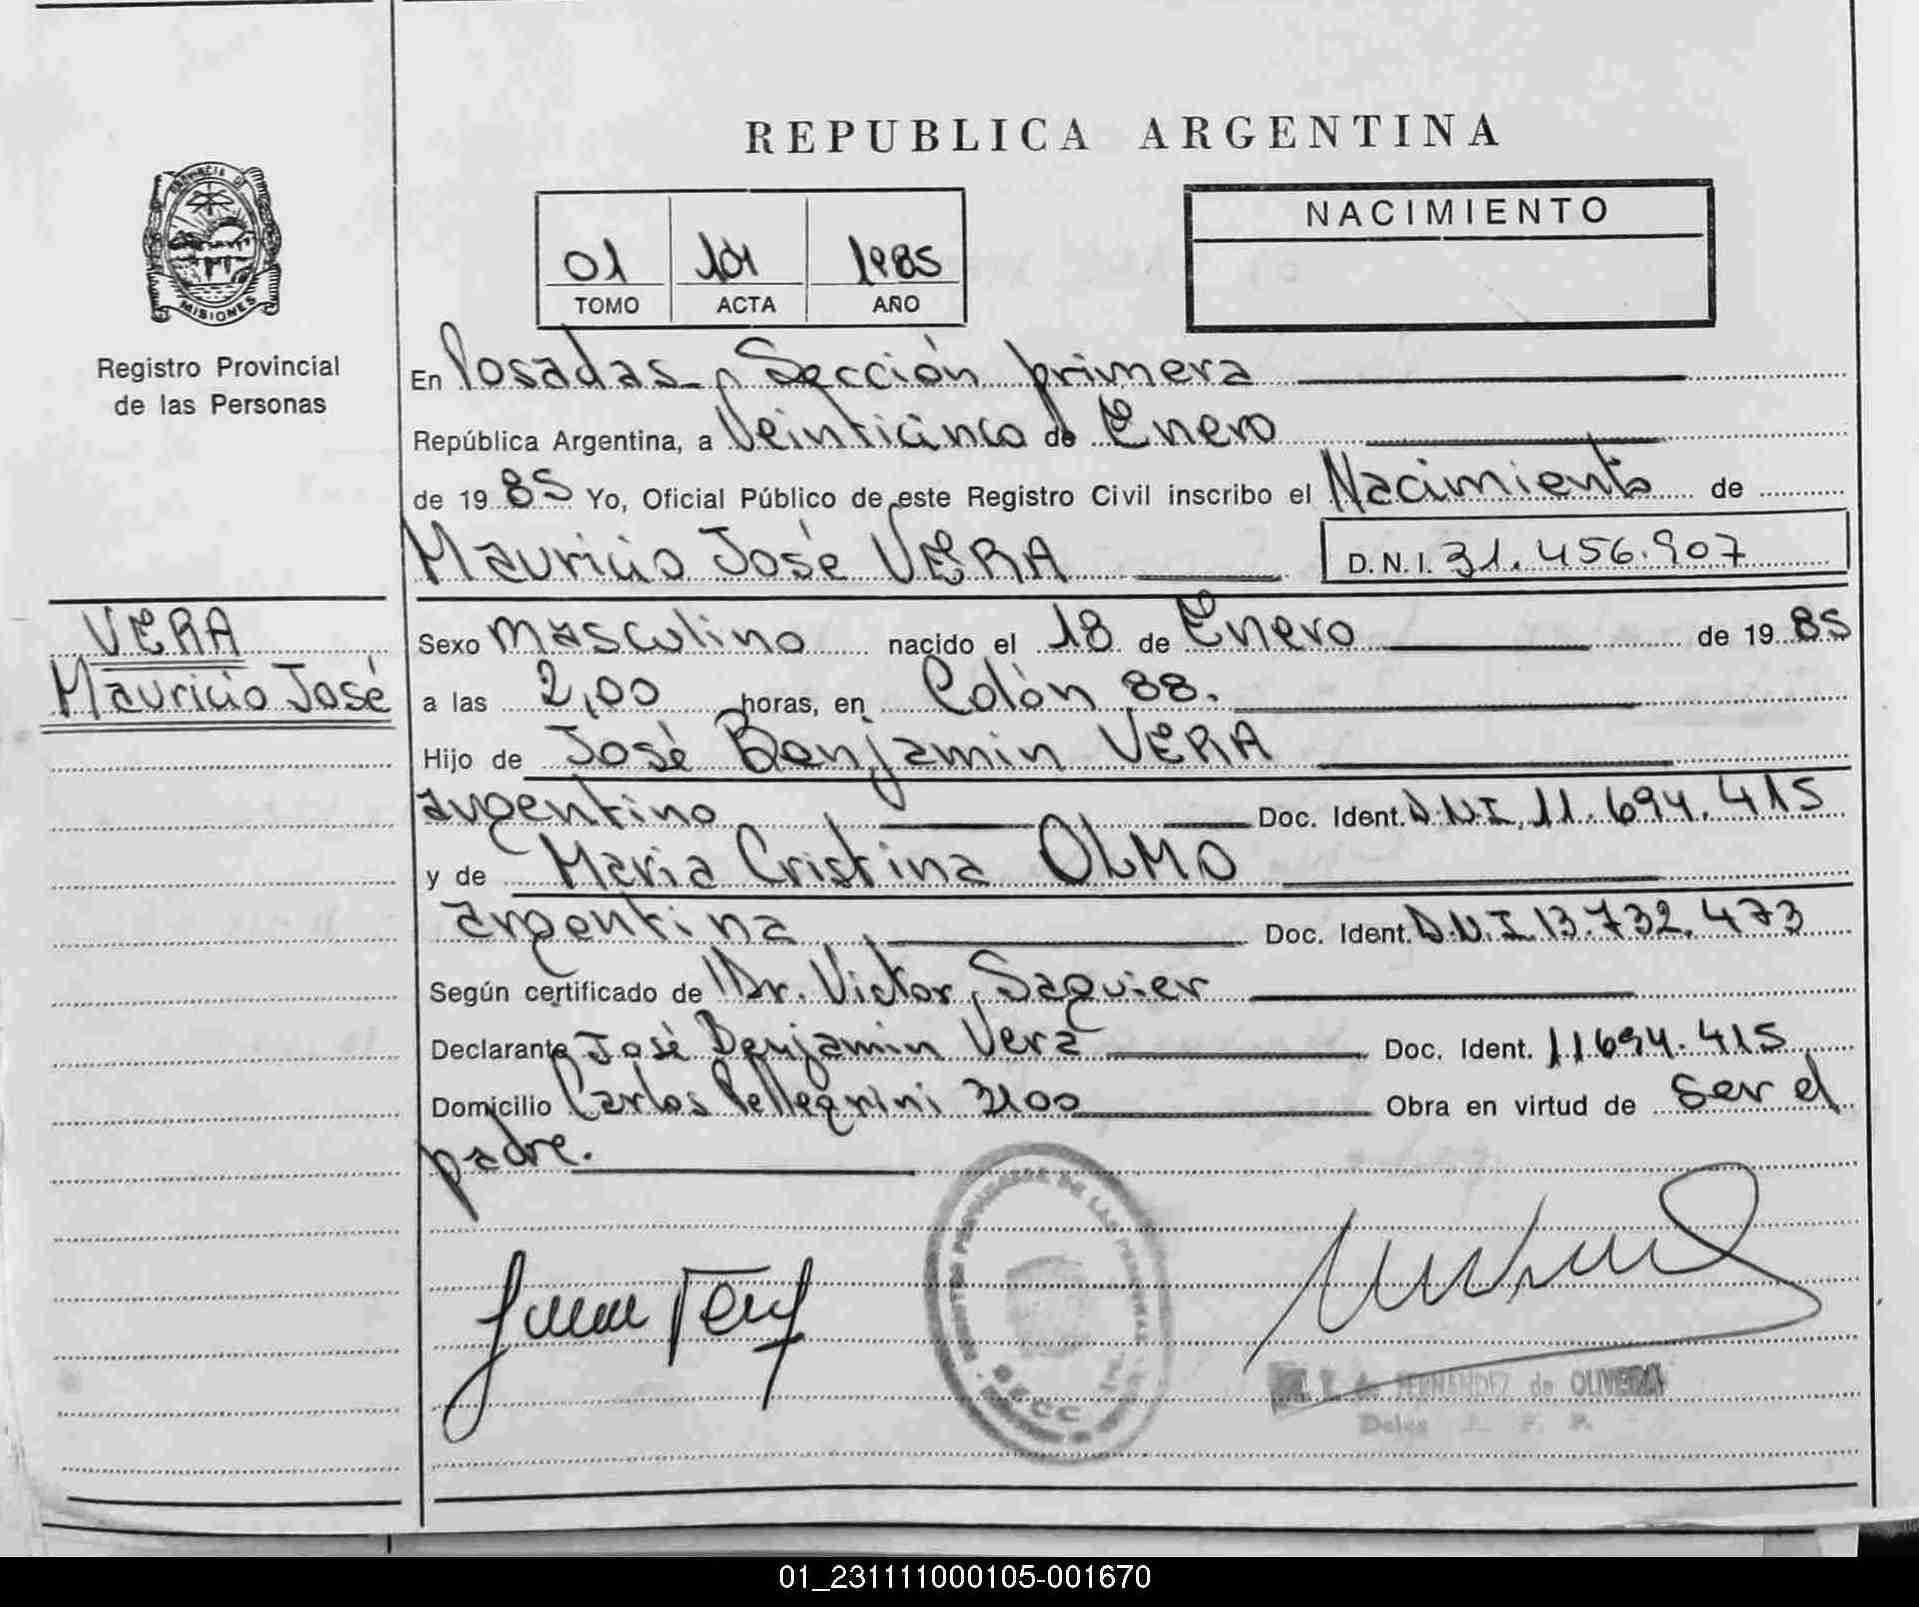 REPUBLICA ARGENTINA
PROVINCIA DE
MISIONES
Registro Provincial
de las Personas
01 101 1985
TOMO ACTA AÑO
NACIMIENTO
En Posadas, Sección primera
República Argentina, a Veinticinco de Enero
de 1985 Yo, Oficial Público de este Registro Civil inscribo el Nacimiento de
Mauricio José VERA D.N.I. 31.456.907
VERA
Mauricio José
Sexo masculino nacido el 18 de Enero de 1985
a las 2,00 horas, en Colón 88.
Hijo de José Benjamin VERA
argentino Doc. Ident. D.N.I. 11.694.415
y de Maria Cristina OLMO
argentina Doc. Ident. D.N.I 13.732.473
Según certificado de Dr. Victor Saguier
Declarante José Benjamin Vera Doc. Ident. 11694.415
Domicilio Carlos Pellegrini 3100 Obra en virtud de ser el
padre.
DE LAS PERSONAS
FERNANDEZ de OLIVEIRA
01_231111000105-001670